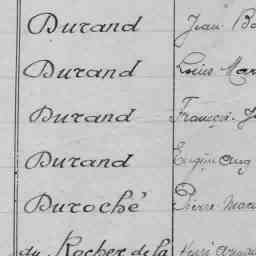 Durand Jean Ba
Durand Louis Mar
Durand François J
Durand Eugène Aug
Duroché Pierre Marie
du Rocher de la Henri Arman